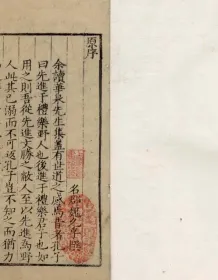 原序
余讀華泉先生集蓋有世道之感焉昔者孔子
曰先進于禮樂野人也後進于禮樂君子也如
用之則吾從先進文勝之敝人至以先進為野
人此其已溺而不可返孔子豈不知之而猶力